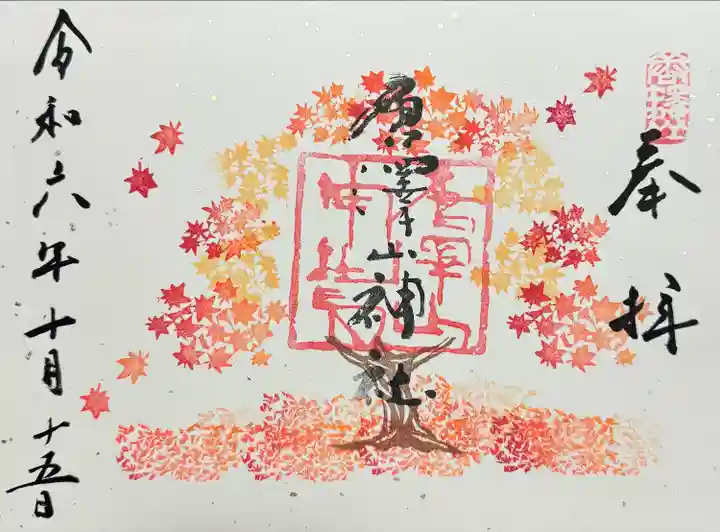 奉拝
唐澤山神社
令和六年十月十五日